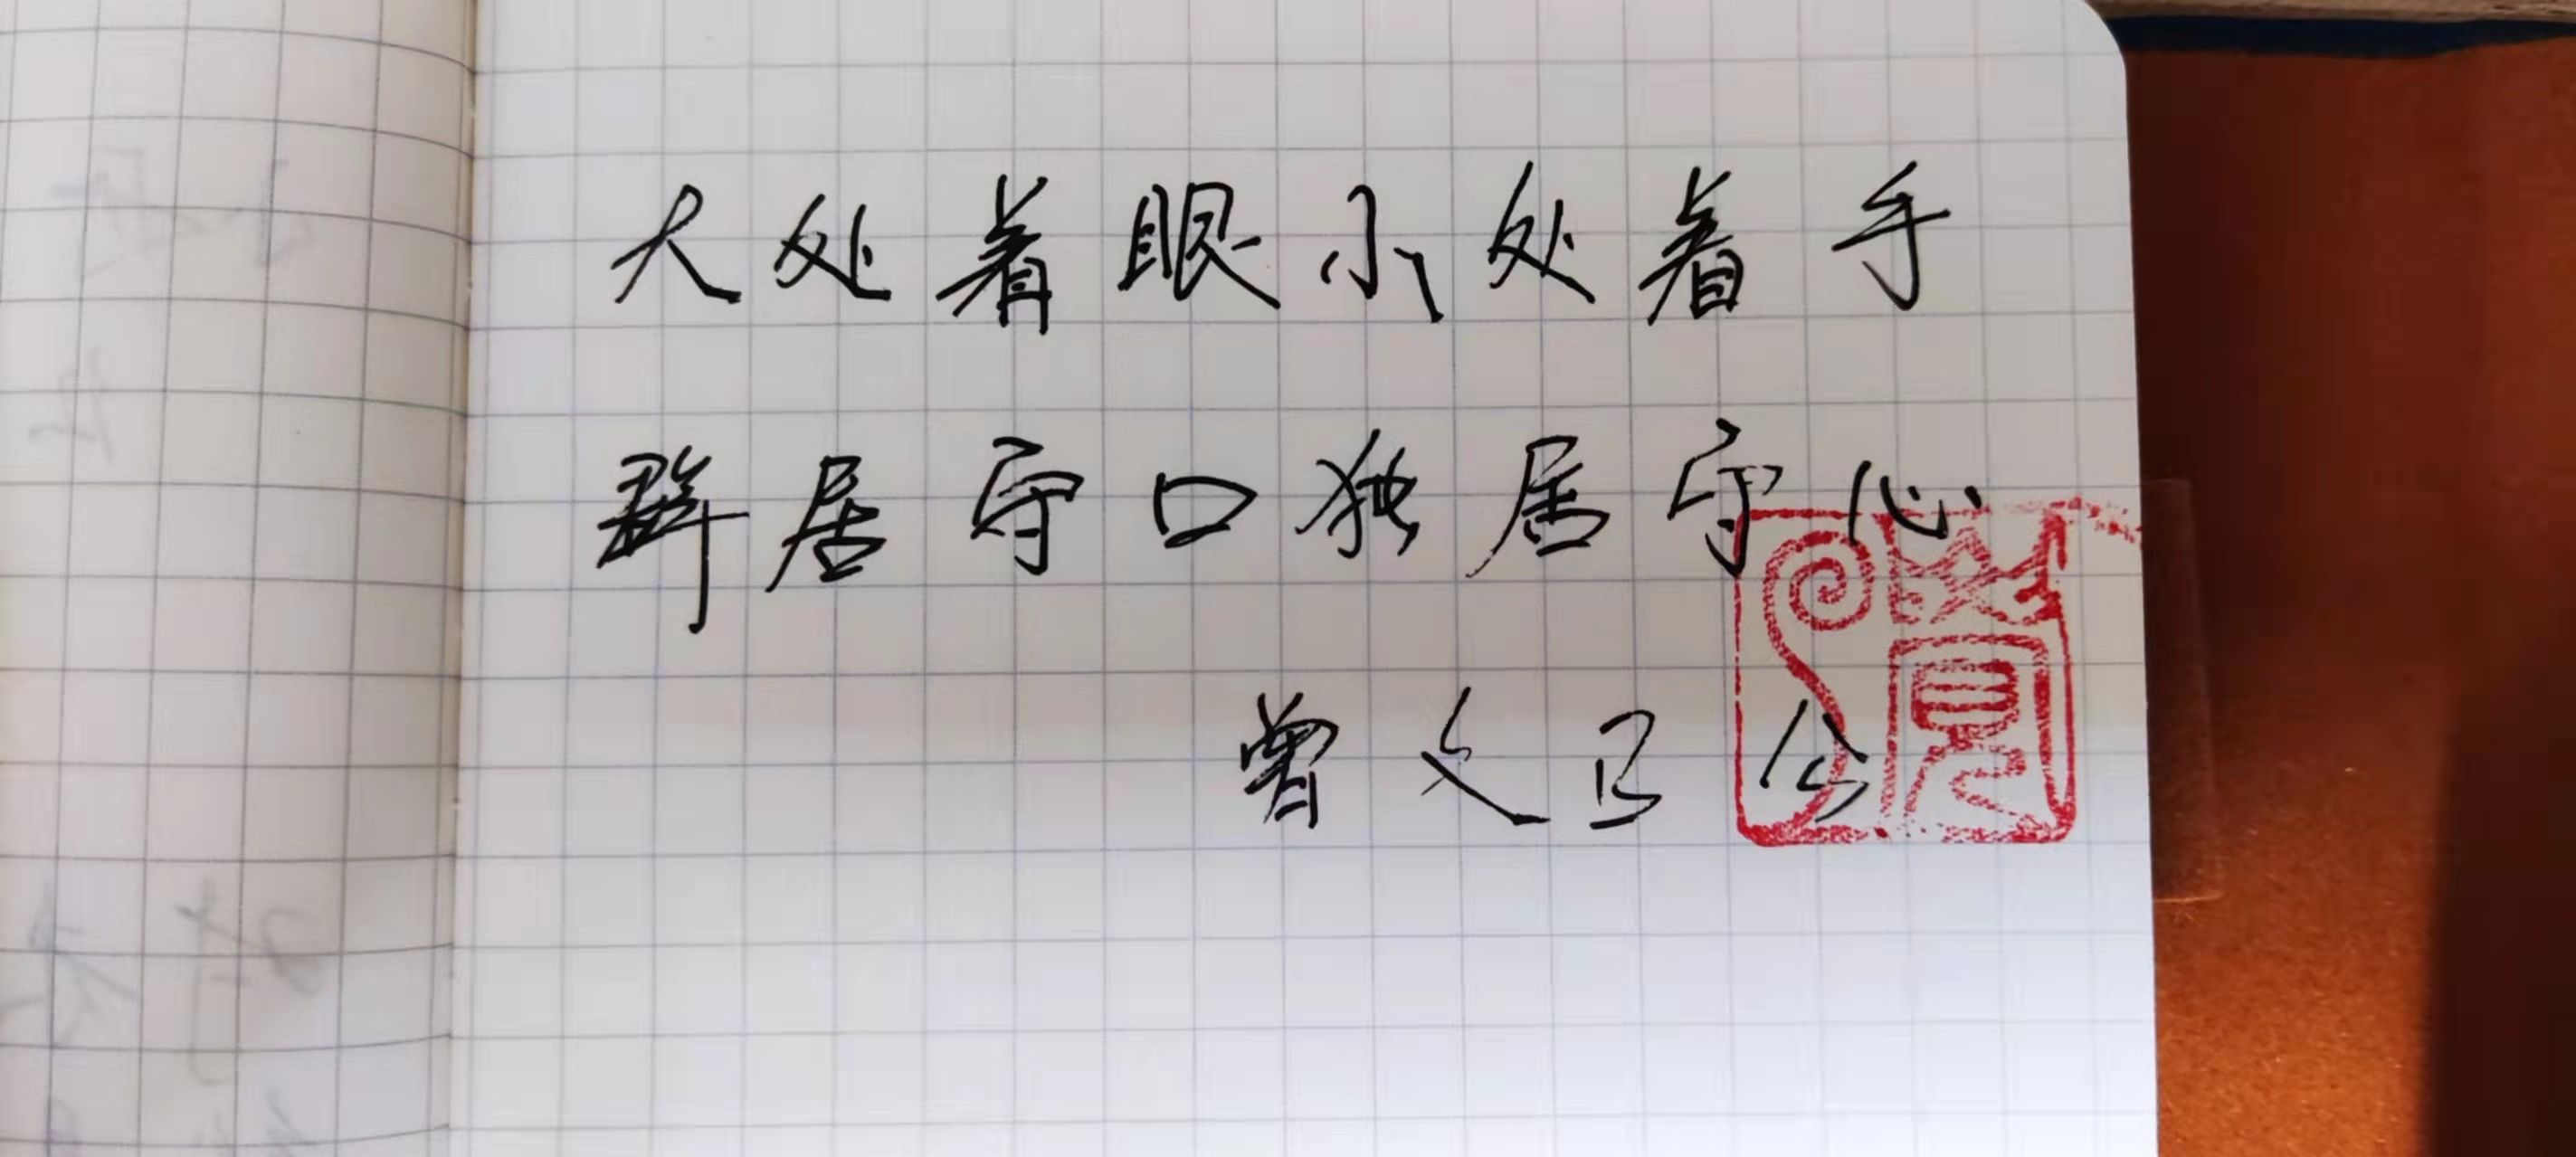 大处着眼小处着手
群居守口独居守心
曾文正公